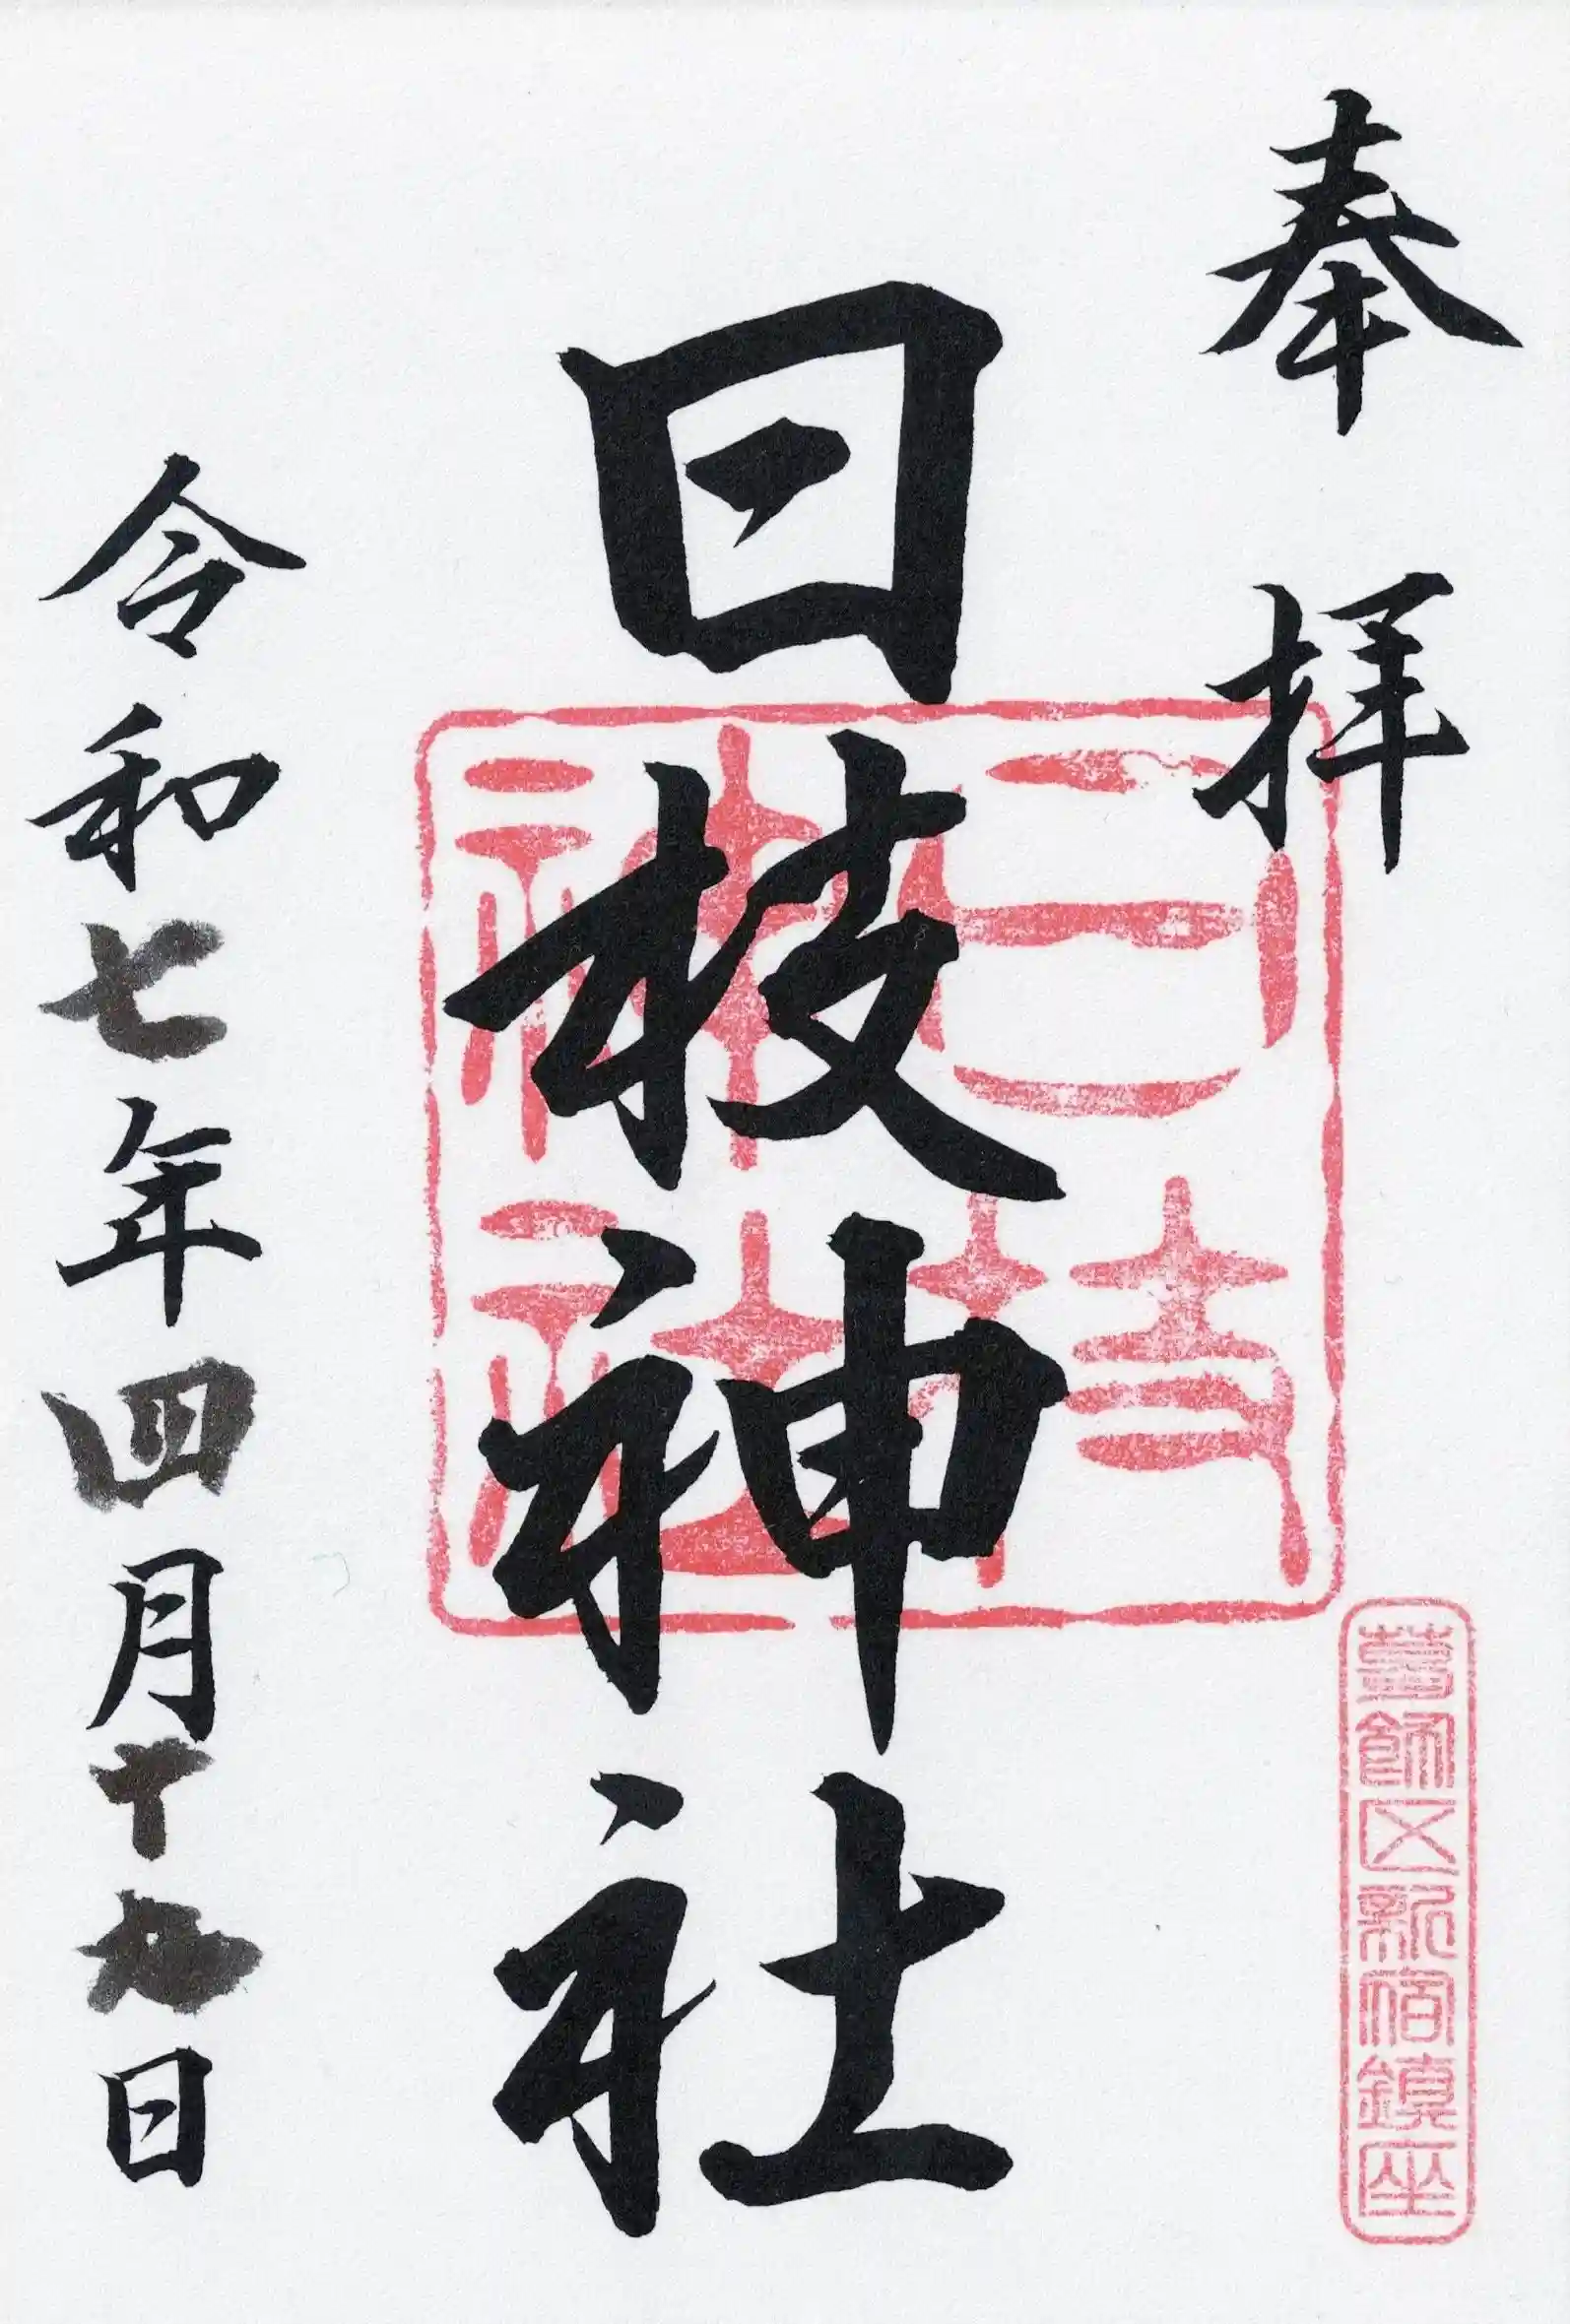 奉拝
葛飾区新宿鎮座
日枝神社
日枝神社
令和七年四月十九日